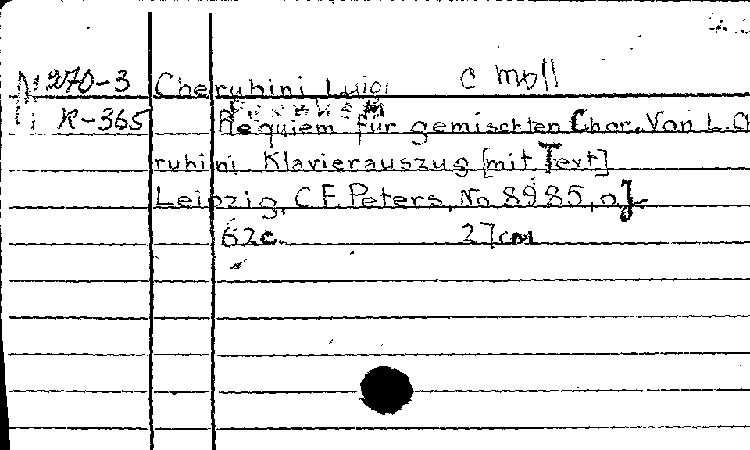 270-3 Cherubini Luigi c moll
R-365 Requiem für gemischten Chor. Von L. Ch
rubini Klavierauszug [mit Text]
Leipzig, C.F. Peters, No 8985, o J.
62c. 27cm